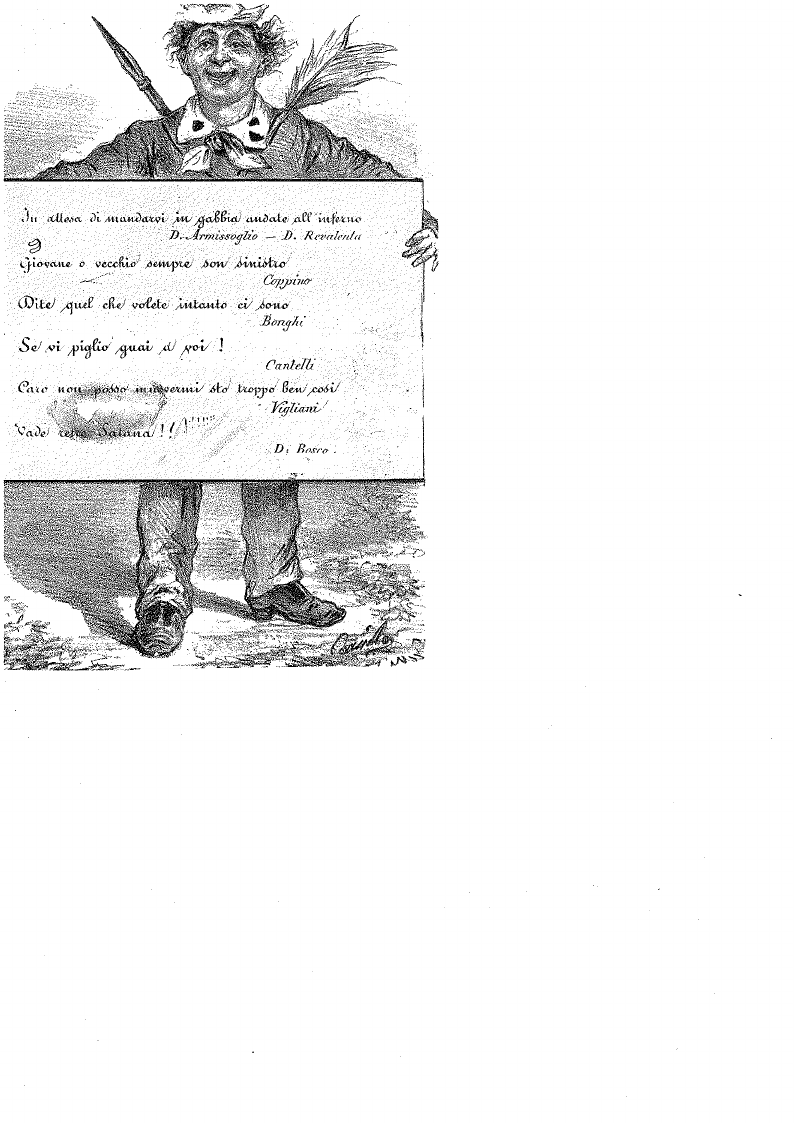 In attesa di mandarvi in gabbia andate all'inferno
D. Armissoglio — D. Revalenta
Giovane o vecchio sempre son sinistro
Coppino
Dite quel che volete intanto ci sono
Bonghi
Se vi piglio guai a voi !
Cantelli
Caro non posso muovermi sto troppo ben così
Vigliani
Vade retro Satana !!
Di Bosco .